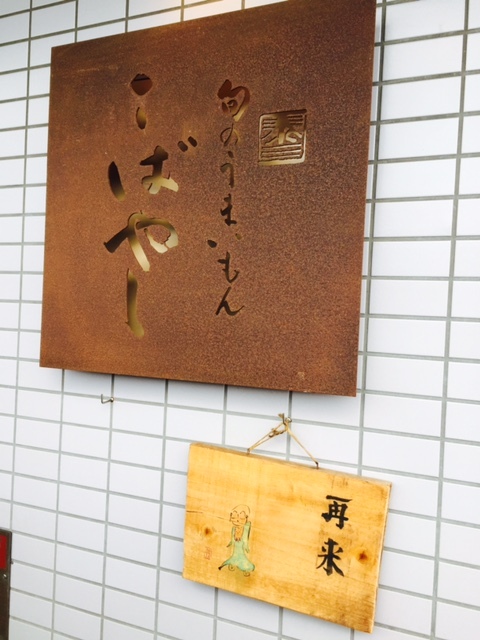 旬のうまいもん
こばやし
再来